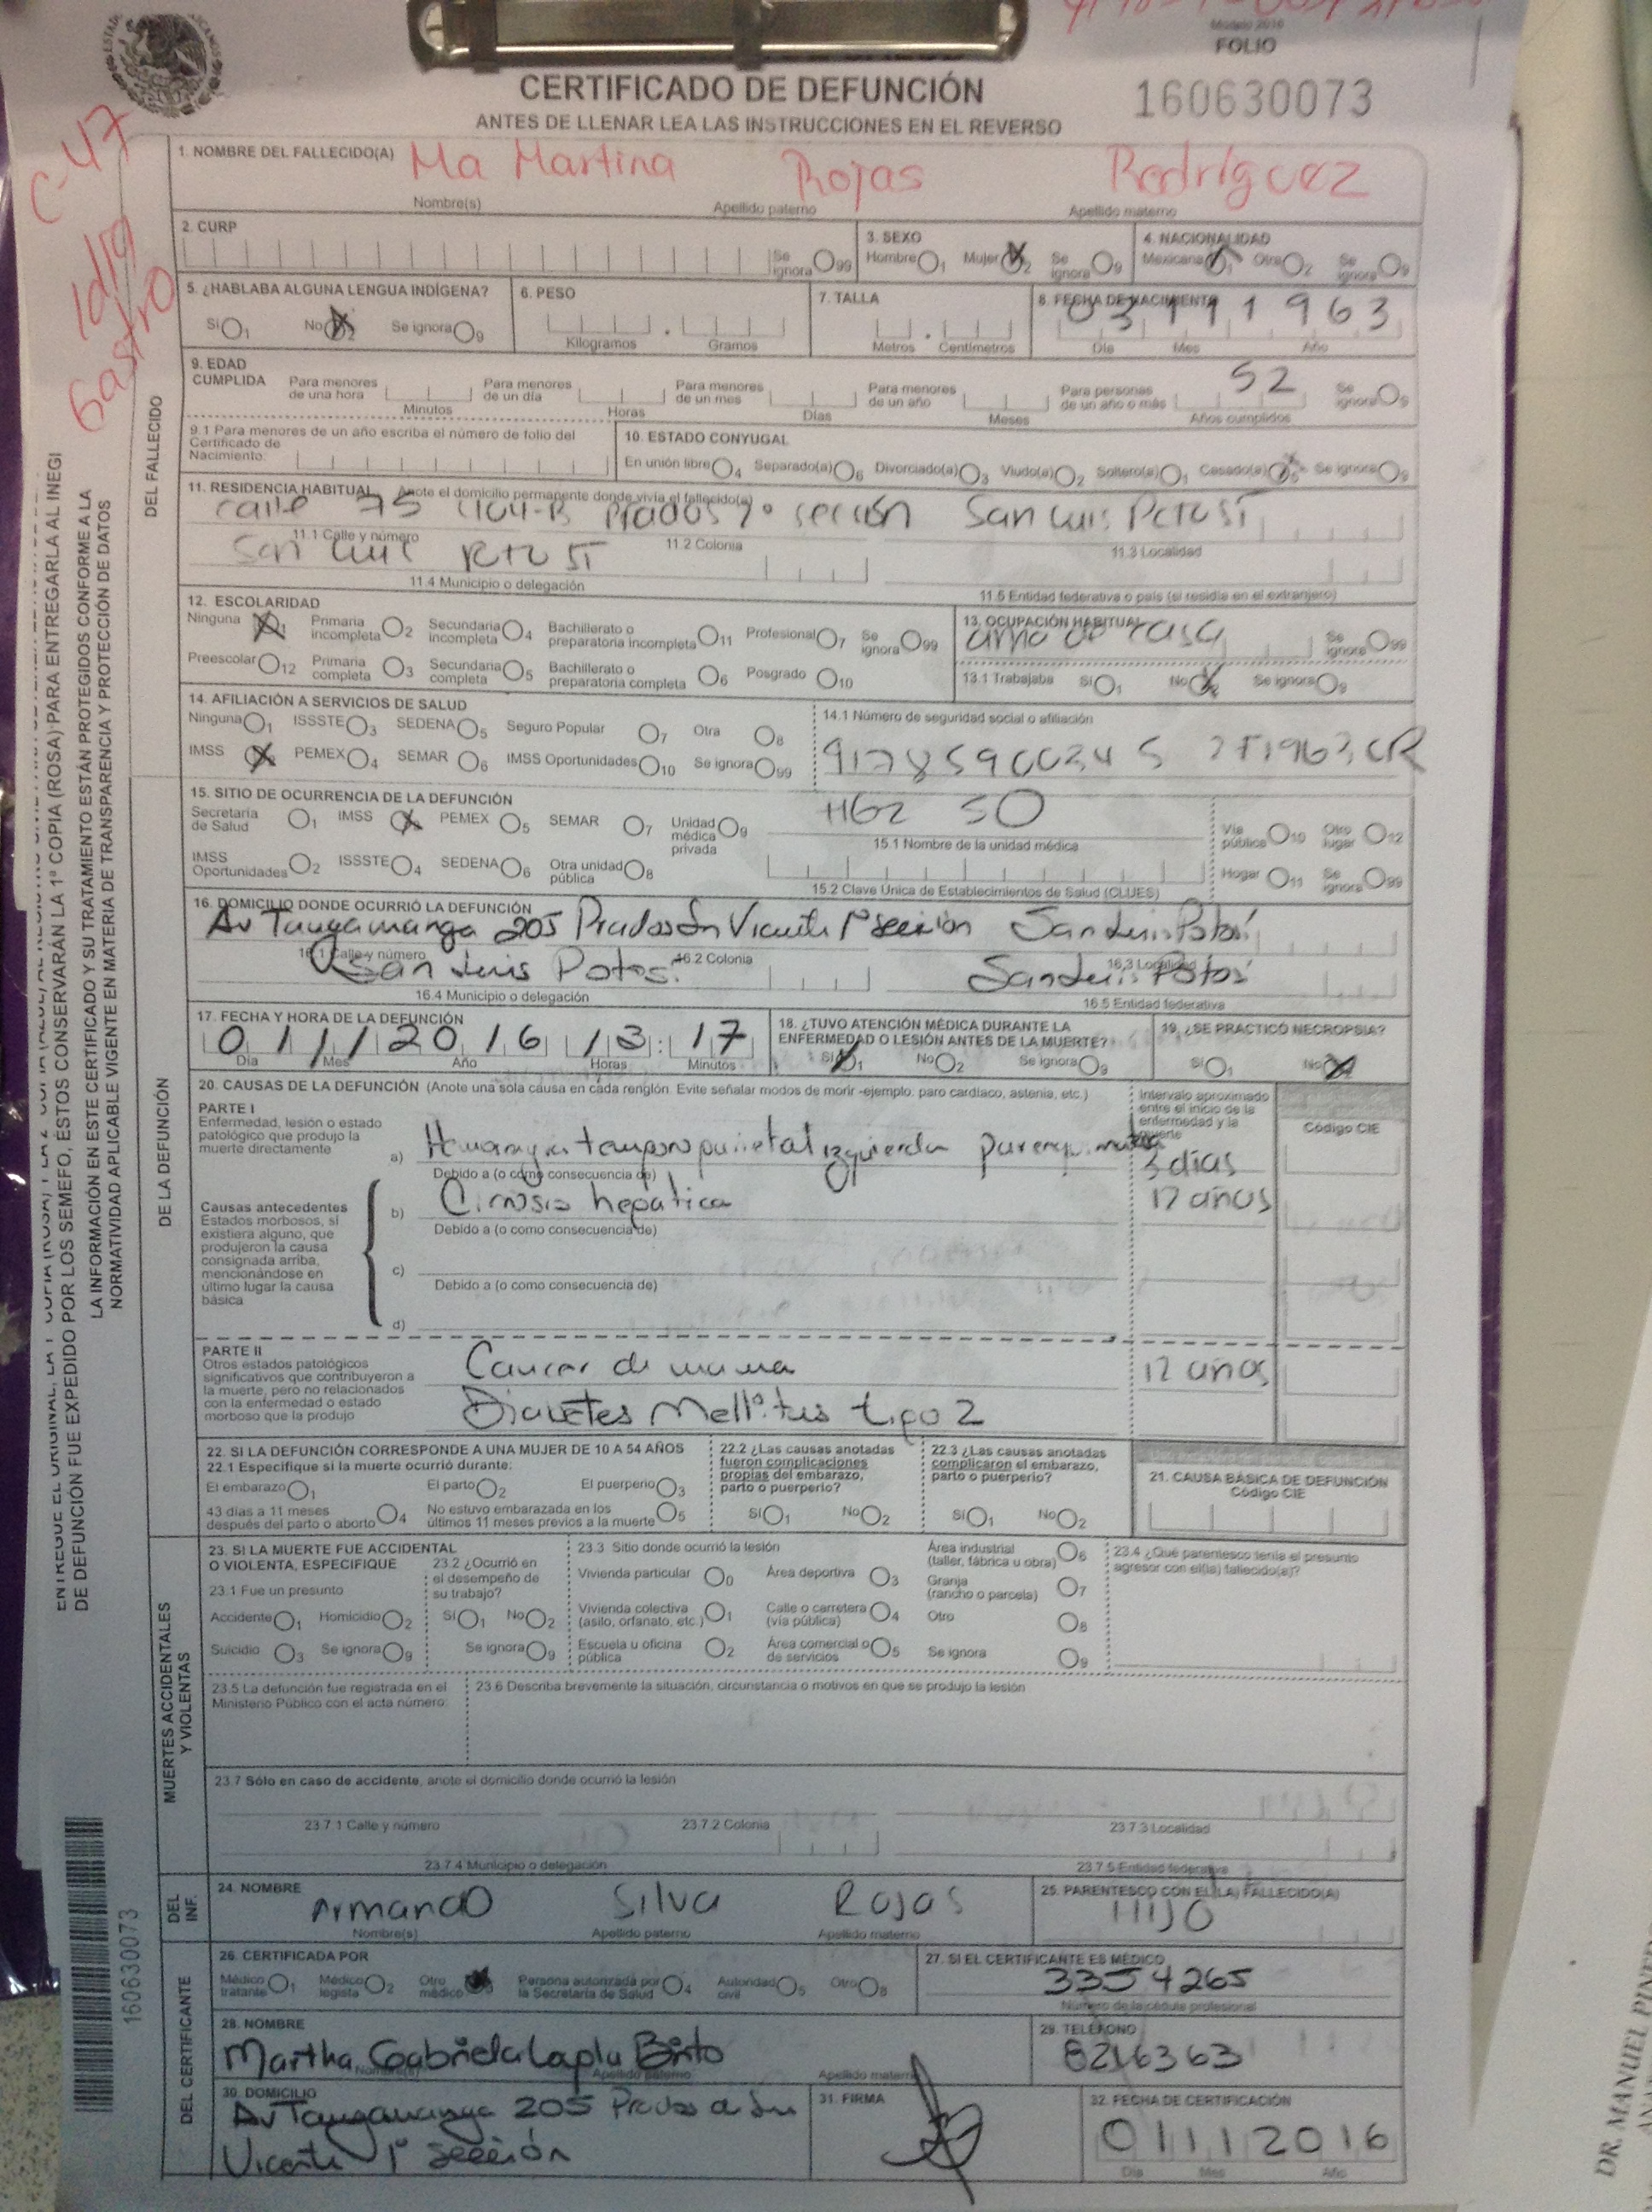 Modelo 2016
FOLIO
160630073
CERTIFICADO DE DEFUNCIÓN
ANTES DE LLENAR LEA LAS INSTRUCCIONES EN EL REVERSO
C-47
Gastro
1. NOMBRE DEL FALLECIDO(A) Ma Martina Rojas Rodríguez
Nombre(s) Apellido paterno Apellido materno
2. CURP Se ignora 99 3. SEXO Hombre 1 Mujer 2 Se ignora 9 4. NACIONALIDAD Mexicana 1 Otra 2 Se ignora 9
5. ¿HABLABA ALGUNA LENGUA INDÍGENA? 6. PESO 7. TALLA 8. FECHA DE NACIMIENTO 03 11 1963
Sí 1 No 2 Se ignora 9 Kilogramos Gramos Metros Centímetros Día Mes Año
9. EDAD CUMPLIDA Para menores de una hora Minutos Para menores de un día Horas Para menores de un mes Días Para menores de un año Meses Para personas de un año o más 52 Años cumplidos Se ignora 9
9.1 Para menores de un año escriba el número de folio del Certificado de Nacimiento:
10. ESTADO CONYUGAL
En unión libre 4 Separado(a) 6 Divorciado(a) 3 Viudo(a) 2 Soltero(a) 1 Casado(a) 5 Se ignora 9
11. RESIDENCIA HABITUAL Anote el domicilio permanente donde vivía el fallecido(a)
calle 75 Prados sección San Luis Potosí
11.1 Calle y número 11.2 Colonia 11.3 Localidad
San Luis Potosí
11.4 Municipio o delegación 11.5 Entidad federativa o país (si residía en el extranjero)
12. ESCOLARIDAD
Ninguna 1 Primaria incompleta 2 Secundaria incompleta 4 Bachillerato o preparatoria incompleta 11 Profesional 7 Se ignora 99
Preescolar 12 Primaria completa 3 Secundaria completa 5 Bachillerato o preparatoria completa 6 Posgrado 10
13. OCUPACIÓN HABITUAL
ama de casa Se ignora 99
13.1 Trabajaba Sí 1 No 2 Se ignora 9
14. AFILIACIÓN A SERVICIOS DE SALUD
Ninguna 1 ISSSTE 3 SEDENA 5 Seguro Popular 7 Otra 8
IMSS PEMEX 4 SEMAR 6 IMSS Oportunidades 10 Se ignora 99
14.1 Número de seguridad social o afiliación
15. SITIO DE OCURRENCIA DE LA DEFUNCIÓN
Secretaría de Salud 1 IMSS PEMEX 5 SEMAR 7 Unidad médica privada 9
HGZ 50
15.1 Nombre de la unidad médica
Vía pública 10 Otro lugar 12
IMSS Oportunidades 2 ISSSTE 4 SEDENA 6 Otra unidad pública 8
15.2 Clave Única de Establecimientos de Salud (CLUES)
Hogar 11 Se ignora 99
16. DOMICILIO DONDE OCURRIÓ LA DEFUNCIÓN
Av Tangamanga 205 Prados Sn Vicente 1ª sección San Luis Potosí
16.1 Calle y número 16.2 Colonia 16.3 Localidad
San Luis Potosí San Luis Potosí
16.4 Municipio o delegación 16.5 Entidad federativa
17. FECHA Y HORA DE LA DEFUNCIÓN
01 11 2016 13:17
Día Mes Año Horas Minutos
18. ¿TUVO ATENCIÓN MÉDICA DURANTE LA ENFERMEDAD O LESIÓN ANTES DE LA MUERTE?
Sí 1 No 2 Se ignora 9
19. ¿SE PRACTICÓ NECROPSIA?
Sí 1 No 2
20. CAUSAS DE LA DEFUNCIÓN (Anote una sola causa en cada renglón. Evite señalar modos de morir -ejemplo: paro cardiaco, astenia, etc.)
Intervalo aproximado entre el inicio de la enfermedad y la muerte
Código CIE
PARTE I
Enfermedad, lesión o estado patológico que produjo la muerte directamente
a) temporoparietal izquierda 3 días
Debido a (o como consecuencia de)
Causas antecedentes
Estados morbosos, si existiera alguno, que produjeron la causa consignada arriba, mencionándose en último lugar la causa básica
b) Cirrosis hepática 12 años
Debido a (o como consecuencia de)
c)
Debido a (o como consecuencia de)
d)
PARTE II
Otros estados patológicos significativos que contribuyeron a la muerte, pero no relacionados con la enfermedad o estado morboso que la produjo
Cancer de mama 12 años
Diabetes Mellitus tipo 2
22. SI LA DEFUNCIÓN CORRESPONDE A UNA MUJER DE 10 A 54 AÑOS
22.1 Especifique si la muerte ocurrió durante:
El embarazo 1 El parto 2 El puerperio 3
43 días a 11 meses después del parto o aborto 4 No estuvo embarazada en los últimos 11 meses previos a la muerte 5
22.2 ¿Las causas anotadas fueron complicaciones propias del embarazo, parto o puerperio?
Sí 1 No 2
22.3 ¿Las causas anotadas complicaron el embarazo, parto o puerperio?
Sí 1 No 2
21. CAUSA BÁSICA DE DEFUNCIÓN
Código CIE
23. SI LA MUERTE FUE ACCIDENTAL O VIOLENTA, ESPECIFIQUE
23.1 Fue un presunto
Accidente 1 Homicidio 2
Suicidio 3 Se ignora 9
23.2 ¿Ocurrió en el desempeño de su trabajo?
Sí 1 No 2
Se ignora 9
23.3 Sitio donde ocurrió la lesión
Vivienda particular 0 Área deportiva 3 Área industrial (taller, fábrica u obra) 6
Vivienda colectiva (asilo, orfanato, etc.) 1 Calle o carretera (vía pública) 4 Granja (rancho o parcela) 7
Otro 8
Escuela u oficina pública 2 Área comercial o de servicios 5 Se ignora 9
23.4 ¿Qué parentesco tenía el presunto agresor con el(la) fallecido(a)?
23.5 La defunción fue registrada en el Ministerio Público con el acta número:
23.6 Describa brevemente la situación, circunstancia o motivos en que se produjo la lesión
23.7 Sólo en caso de accidente, anote el domicilio donde ocurrió la lesión
23.7.1 Calle y número 23.7.2 Colonia 23.7.3 Localidad
23.7.4 Municipio o delegación 23.7.5 Entidad federativa
24. NOMBRE Armando Silva Rojas
Nombre(s) Apellido paterno Apellido materno
25. PARENTESCO CON EL(LA) FALLECIDO(A)
HIJO
26. CERTIFICADA POR
Médico tratante 1 Médico legista 2 Otro médico Persona autorizada por la Secretaría de Salud 4 Autoridad civil 5 Otro 8
27. SI EL CERTIFICANTE ES MÉDICO
3354265
Número de la cédula profesional
28. NOMBRE
Martha Gabriela Brito
Nombre(s) Apellido paterno Apellido materno
29. TELÉFONO
30. DOMICILIO
Av Tangamanga 205 Prados Sn
Vicente 1ª sección
31. FIRMA
32. FECHA DE CERTIFICACIÓN
01 11 2016
Día Mes Año
DEL FALLECIDO
DE LA DEFUNCIÓN
MUERTES ACCIDENTALES Y VIOLENTAS
DEL INF.
DEL CERTIFICANTE
DE DEFUNCIÓN FUE EXPEDIDO POR LOS SEMEFO, ÉSTOS CONSERVARÁN LA 1ª COPIA (ROSA) PARA ENTREGARLA AL INEGI
LA INFORMACIÓN EN ESTE CERTIFICADO Y SU TRATAMIENTO ESTÁN PROTEGIDOS CONFORME A LA
NORMATIVIDAD APLICABLE VIGENTE EN MATERIA DE TRANSPARENCIA Y PROTECCIÓN DE DATOS
160630073
DR. MANUEL